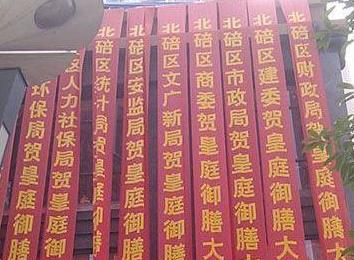 环保局贺皇庭御膳
区人力社保局贺皇庭御膳
北碚区统计局贺皇庭御膳
北碚区安监局贺皇庭御膳
北碚区文广新局贺皇庭御膳
北碚区商委贺皇庭御膳大
北碚区市政局贺皇庭御膳
北碚区建委贺皇庭御膳大
北碚区财政局贺皇庭御膳